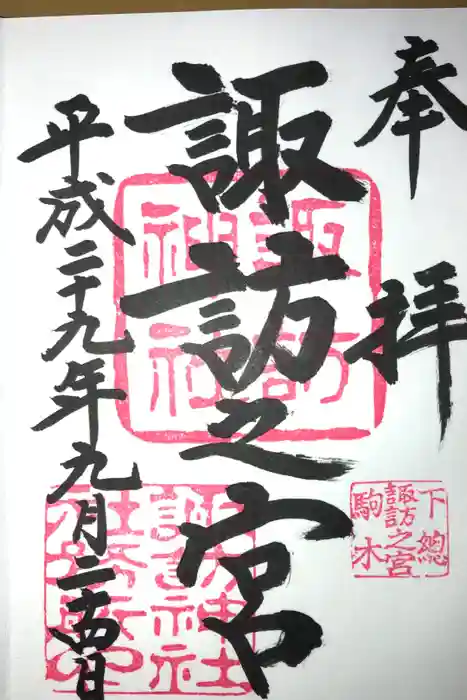 奉拝
下總
諏訪之宮
駒木
諏訪之宮
諏訪
神社
平成二十九年九月二十四日